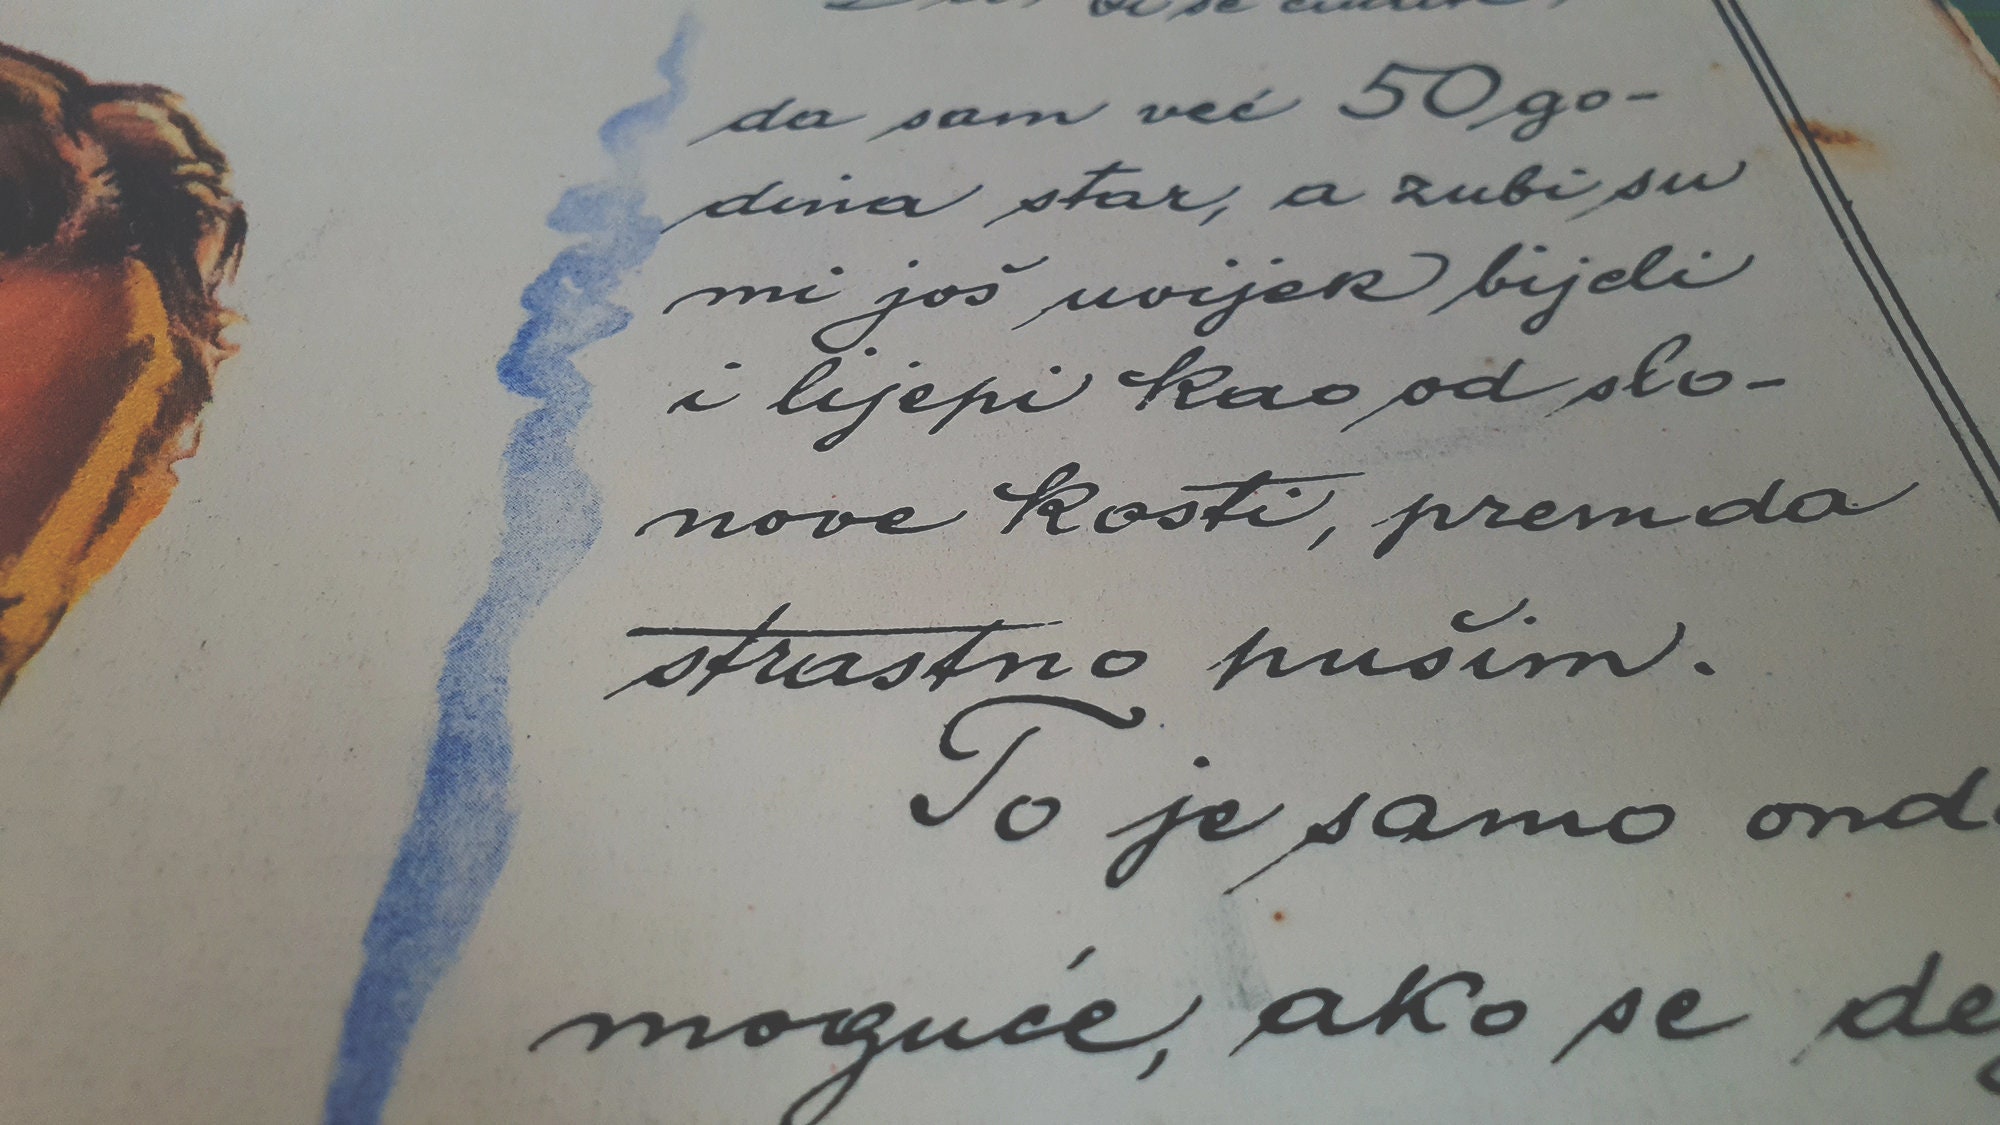 da sam već 50 go-
dina star, a zubi su
mi još uvijek bijeli
i lijepi kao od slo-
nove kosti, premda
strastno pušim.
To je samo
moguće, ako se